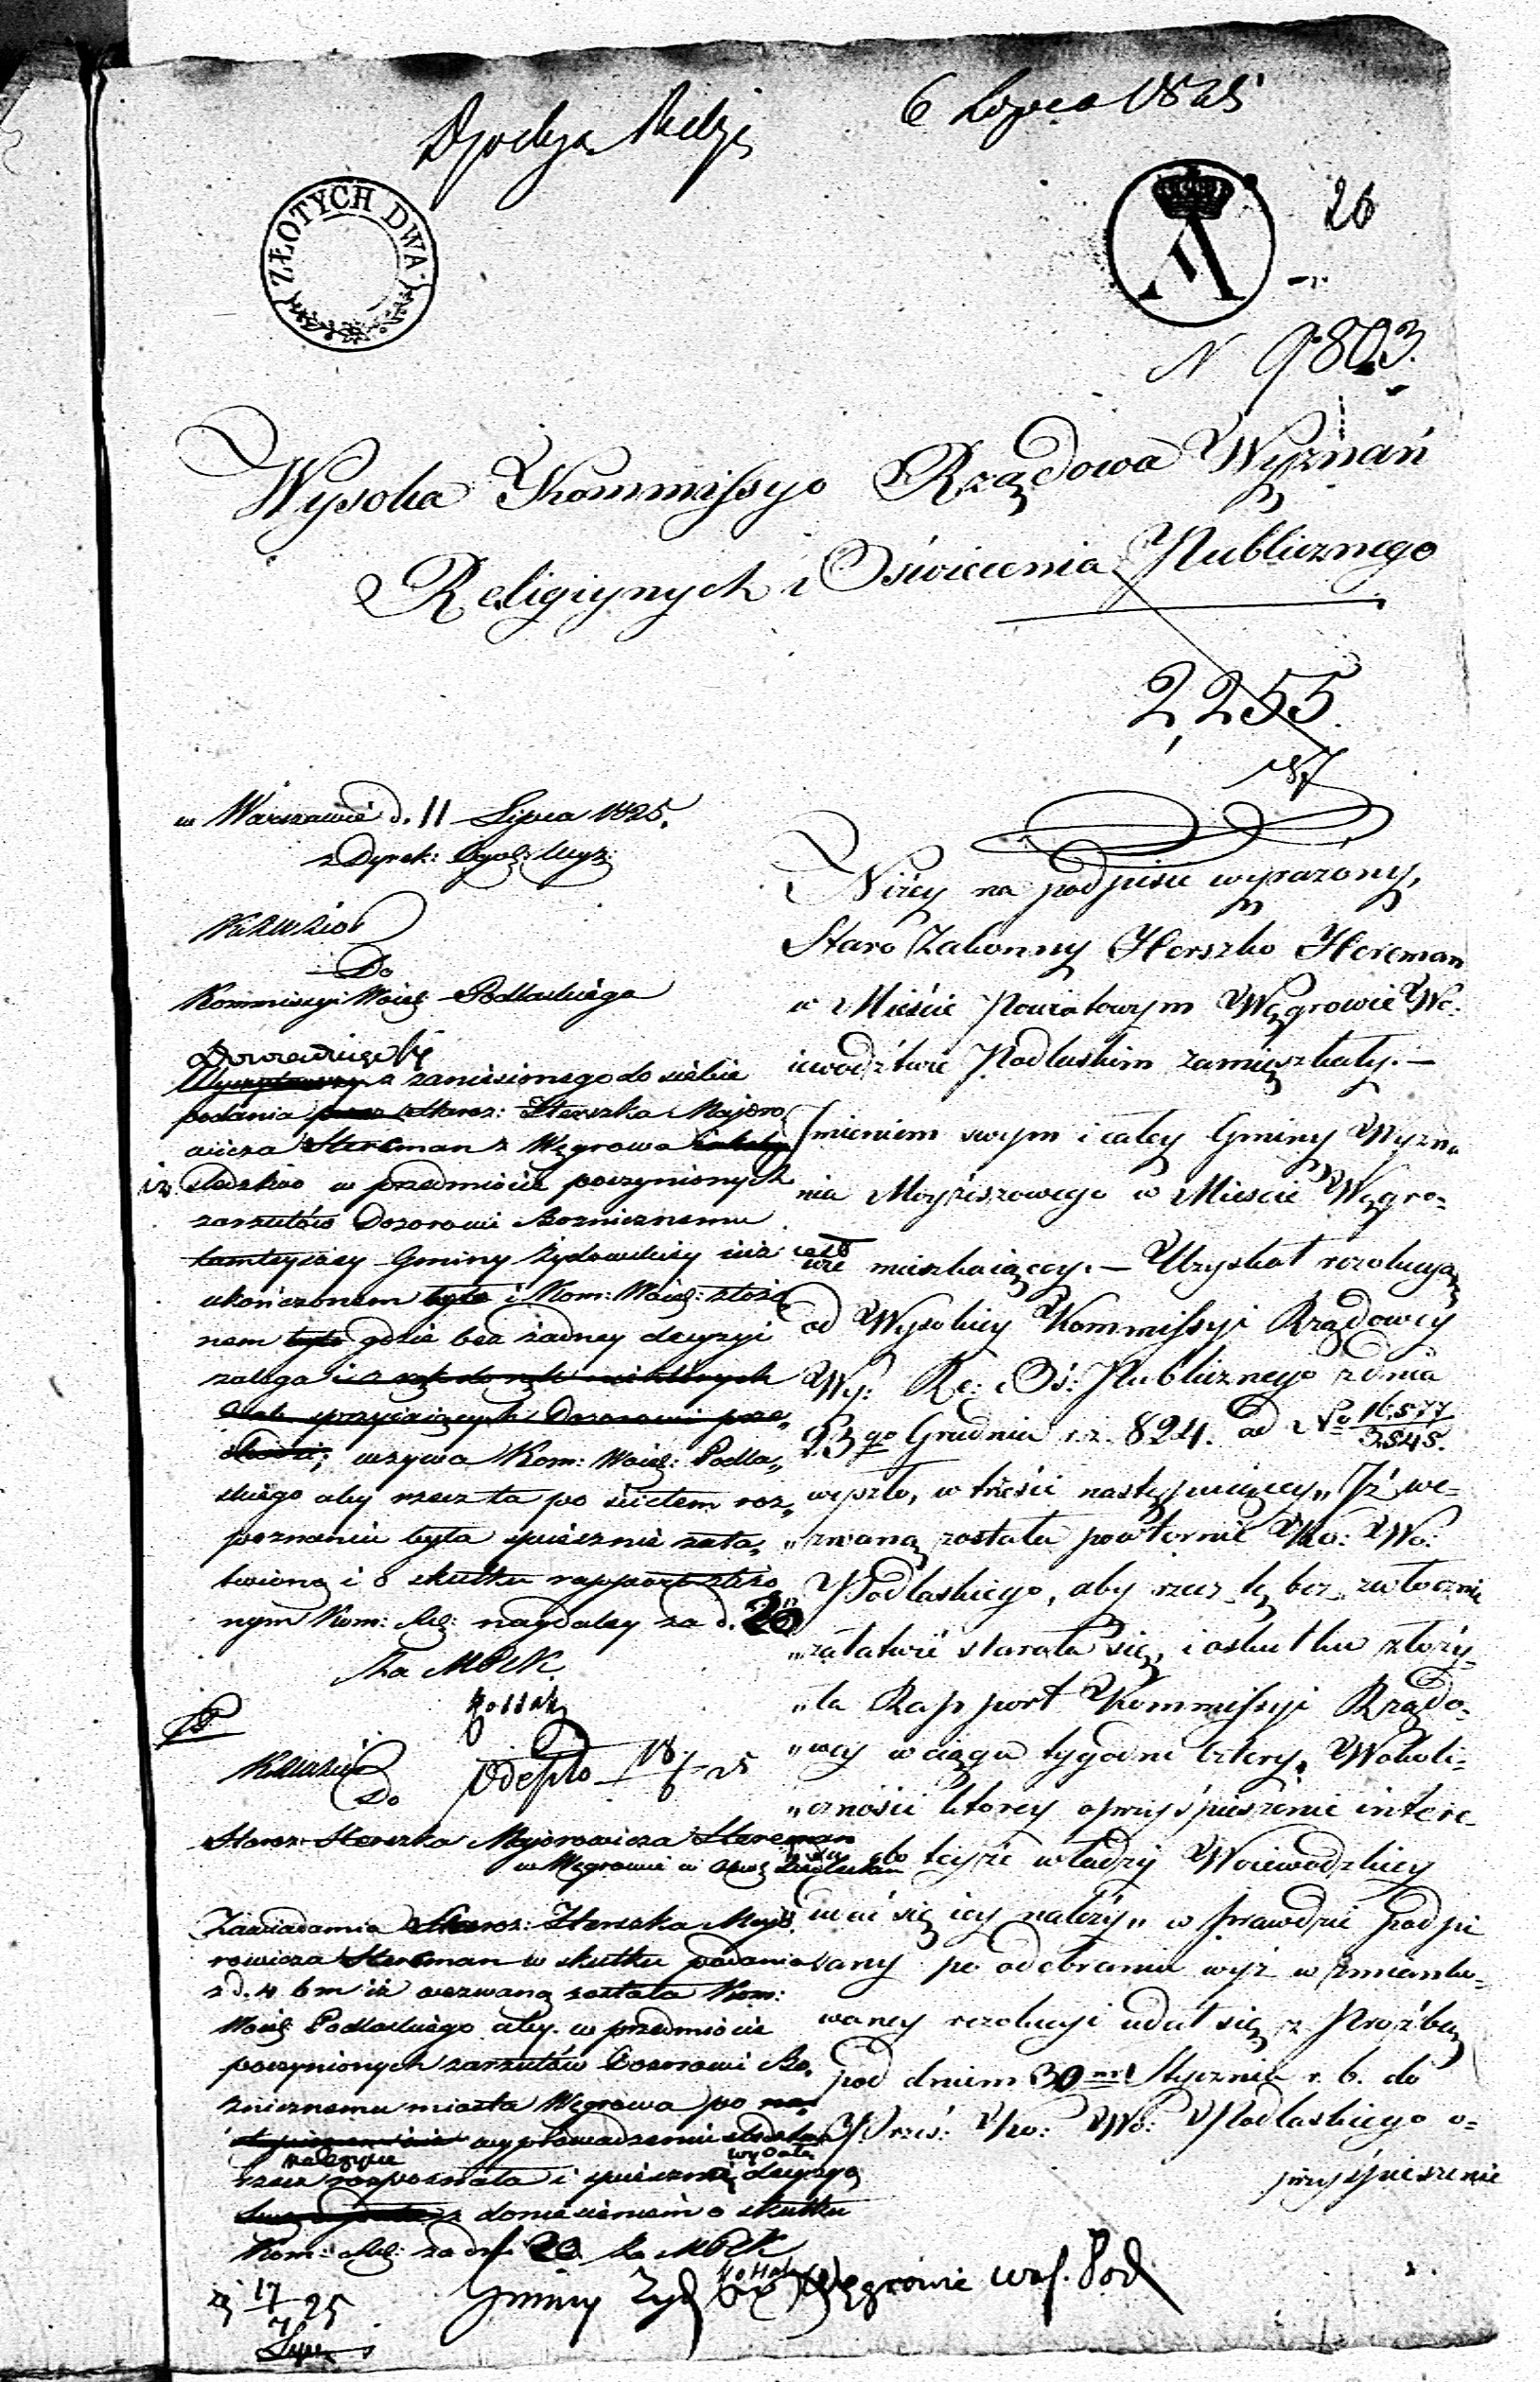 6 Lipca 1825
ZŁOTYCH DWA
A
26
N 9803.
Wysoka Kommissyo Rządowa Wyznań
Religiynych i Oświecenia Publicznego
2,255.
w Warszawie d. 11 Lipca 1825.
z Dyrek: Ogól: Wyz:
Do
Kommissyi Woie: Podlaskiego
z zaniesionego do siebie
podania przez Staroz: Herszka Majoro
wicza Hereman z Węgrowa
iż śledztwo w przedmiocie poczynionych
zarzutów Dozorowi Bożnicznemu
tamteyszey Gminy Żydowskiey iuż
ukończonem było i Kom: Woie: złożo
nem było gdzie bez żadney decyzyi
zalega
wzywa Kom: Woie: Podla„
skiego aby rzecz ta po ścisłem roz„
poznaniu była spiesznie zała„
twioną i o skutku rapport złożo
nym Kom: Rz: naydaley za d. 20
Za MPK
Kossak
Do
Odeszło 18/7 25
Staroz: Herszka Majorowicza Hereman
w Węgrowie w
Zawiadamia Staroz: Herszka Mayo
rowicza Hereman w skutku podania
z d. 4 b m iż wezwaną została Kom:
Woie: Podlaskiego aby w przedmiocie
poczynionych zarzutów Dozorowi Bo„
żnicznemu miasta Węgrowa po
wyprowadzeniu śledztwa
należycie wydała
rzecz rozpoznała i spiesznie decyzyą
z doniesieniem o skutku
Kom: Rz: za dni 20 Za MPK
Kossak
17/7 25
Niżey na podpisie wyrażony,
Staro Zakonny Herszko Hereman
w Mieście Powiatowym Węgrowie Wo:
iewództwie Podlaskim zamieszkały. —
Imieniem swym i całey Gminy Wyzna
nia Moyżeszowego w Mieście Węgro-
wie mieszkaiącey. — Uzyskał rezolucyą
od Wysokiey Kommissyi Rządowey
Wy: Re: i Oś: Publicznego z dnia
23go Grudnia r. z. 824. ad No 16,577/3545.
wyszło, w treści następuiącey „Iż we-
„zwaną została powtórnie Ko: Wo:
Podlaskiego, aby rzecz tę bez zwłocznie
„załatwić starała się, i o skutku złoży-
„ła Rapport Kommissyi Rządo-
„wey w ciągu tygodni cztery, W okoli-
„czności którey o przyśpieszenie intere-
do teyże władzy Woiewodzkiey
sować się iey należy„ w prawdzie Podpi
sany po odebraniu wyż w zmianko-
waney rezolucyi udał się z Proźbą
pod dniem 30 mi Stycznia r. b. do
Prześ: Ko: Wo: Podlaskiego o-
przyśpieszenie
Gminy Żyd w Węgrowie Woj. Pod